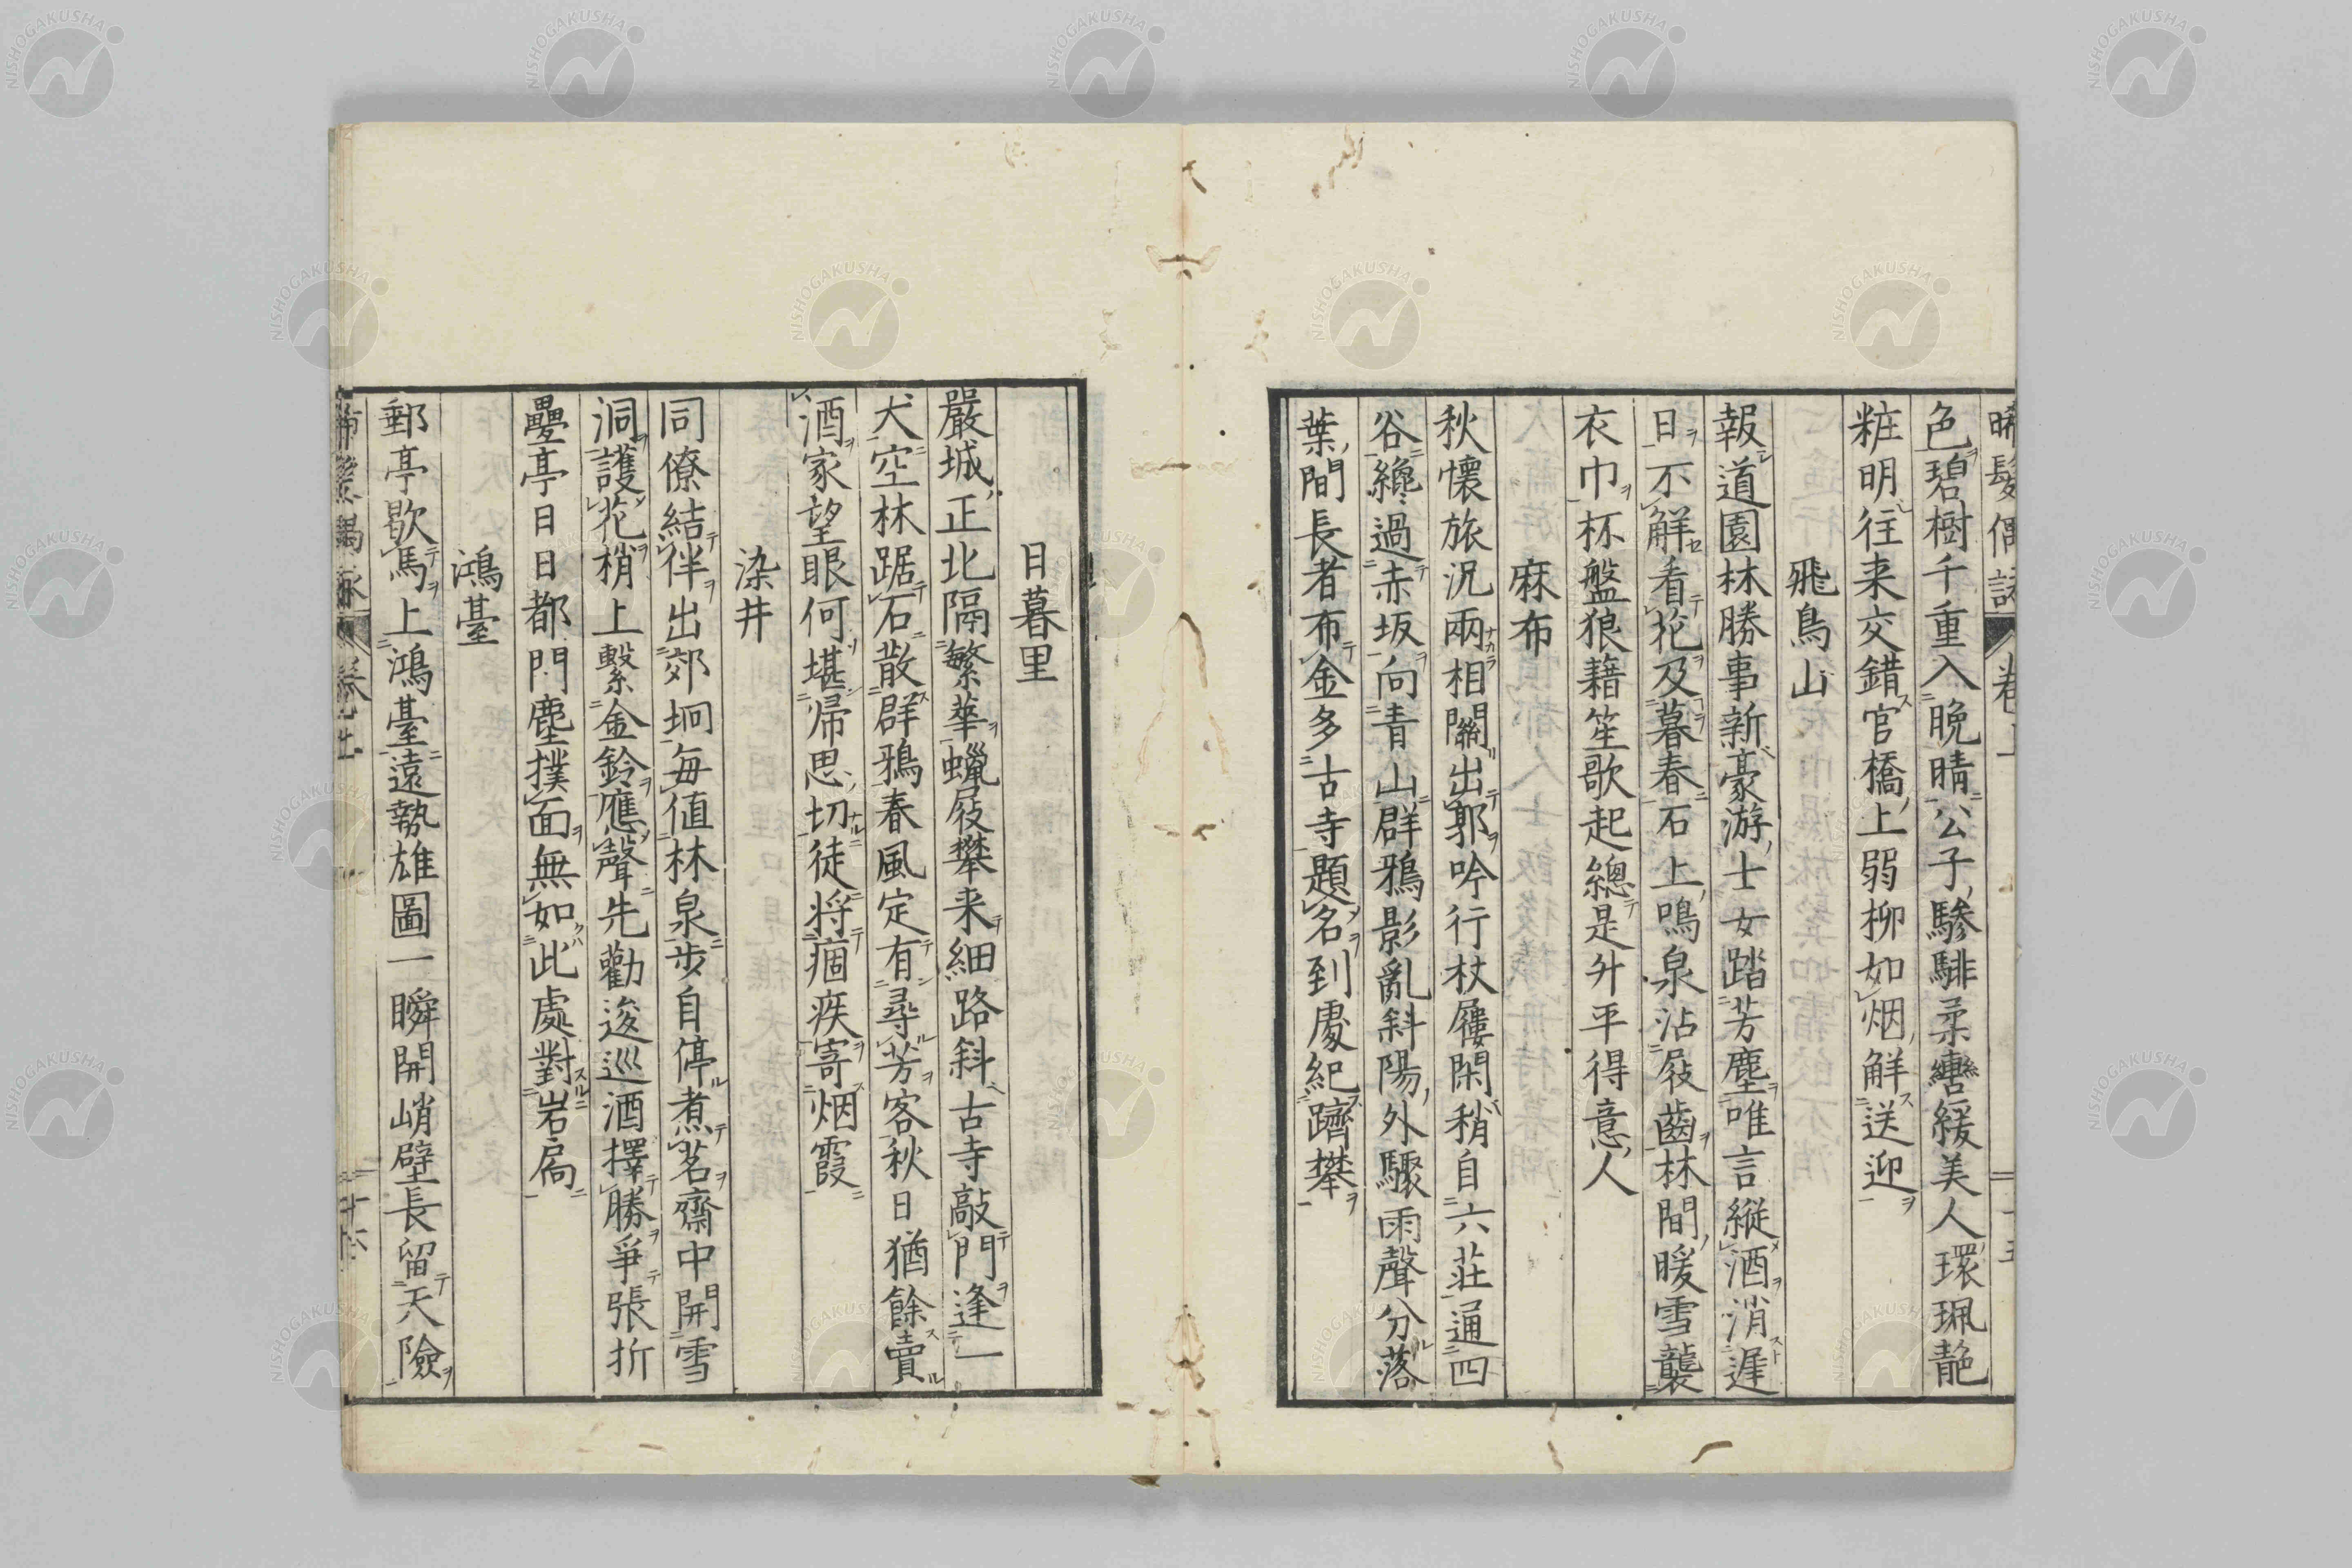 晞髮偶詠 卷上 十五
色碧樹千重入晩晴公子驂騑柔轡緩美人環珮靘
粧明往来交錯官橋上弱柳如烟解送迎
飛鳥山
報道園林勝事新豪游士女踏芳塵唯言縦酒消遅
日不解看花及暮春石上鳴泉沾屐齒林間暖雪襲
衣巾杯盤狼藉笙歌起總是升平得意人
麻布
秋懷旅況兩相關出郭吟行杖屨閑稍自六莊通四
谷纔過赤坂向青山群鴉影亂斜陽外驟雨聲分落
葉間長者布金多古寺題名到處紀躋攀
日暮里
嚴城正北隔繁華蠟屐攀来細路斜古寺敲門逢一
犬空林踞石散群鴉春風定有尋芳客秋日猶餘賣
酒家望眼何堪帰思切徒将痼疾寄烟霞
染井
同僚結伴出郊坰毎值林泉步自停煮茗齋中開雪
洞護花梢上繫金鈴應聲先勸逡巡酒擇勝爭張折
疊亭日日都門塵撲面無如此處對岩扃
鴻臺
郵亭歇馬上鴻臺遠勢雄圖一瞬開峭壁長留天險
晞髮偶詠 卷之上 十六
NISHOGAKUSHA